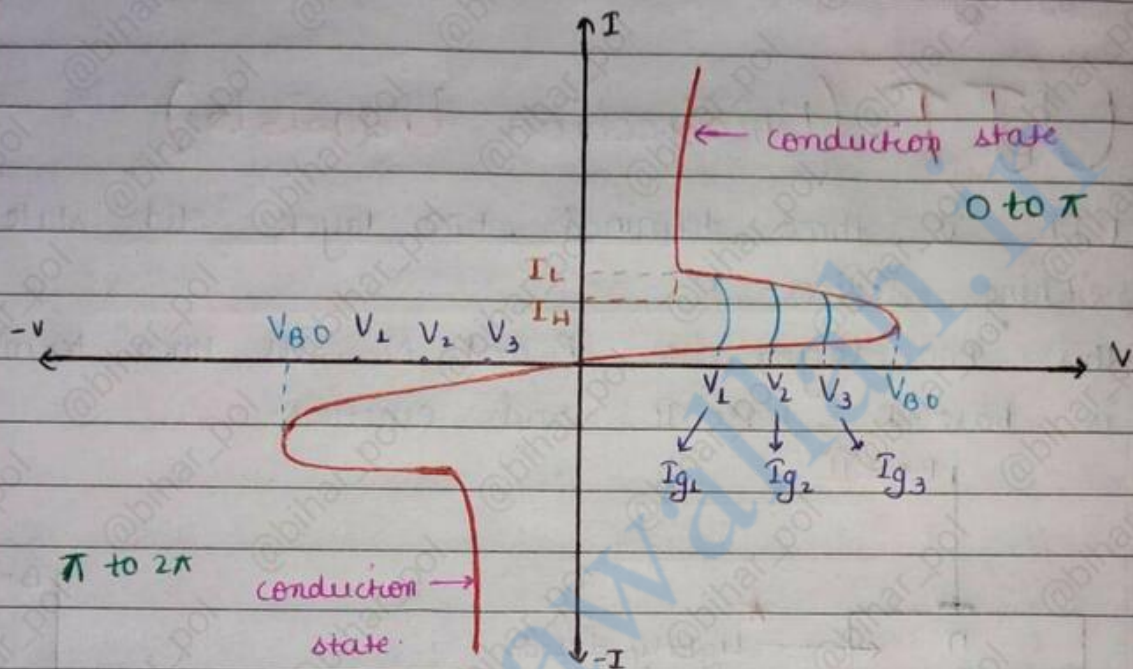 I
← conduction state
0 to π
I_L
I_H
-V
V_BO V_1 V_2 V_3
V
V_1 V_2 V_3 V_BO
I_g1 I_g2 I_g3
π to 2π
conduction →
state.
-I
@bihar_pol